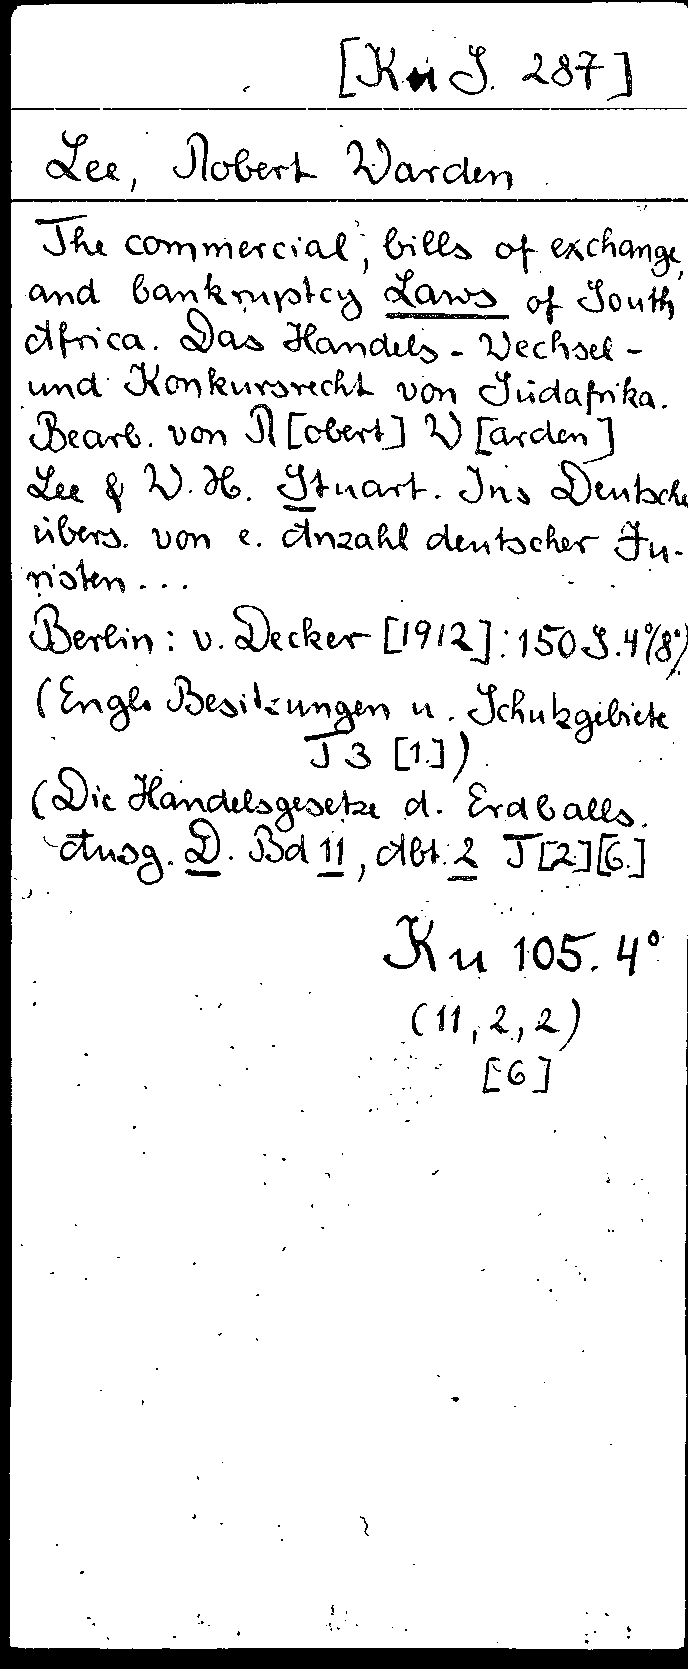 [Ku S. 287]
Lee, Robert Warden
The commercial, bills of exchange,
and bankruptcy Laws of South
Africa. Das Handels- Wechsel-
und Konkursrecht von Südafrika.
Bearb. von R[obert] W[arden]
Lee & W. H. Stuart. Ins Deutsche
übers. von e. Anzahl deutscher Ju-
risten...
Berlin: v. Decker [1912]: 150 S. 4°(8°)
(Engl. Besitzungen u. Schutzgebiete
T 3 [1.])
(Die Handelsgesetze d. Erdballs.
Ausg. D. Bd 11, Abt. 2 T[2][6.]
Ku 105. 4°
(11, 2, 2)
[6]